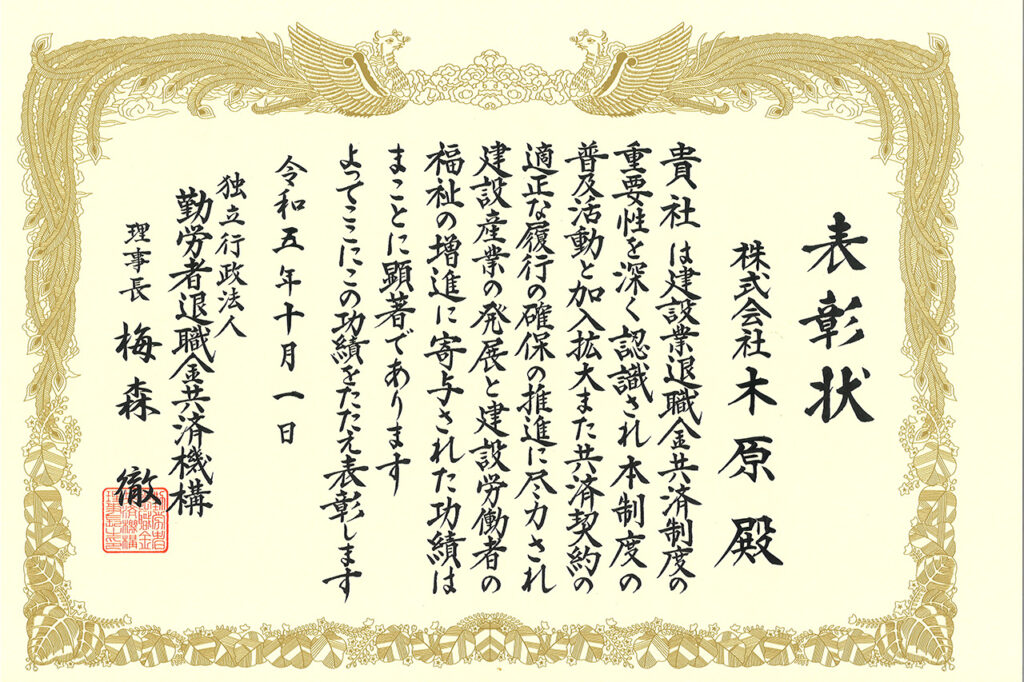 表彰状
株式会社木原殿
貴社は建設業退職金共済制度の
重要性を深く認識され本制度の
普及活動と加入拡大また共済契約の
適正な履行の確保の推進に尽力され
建設産業の発展と建設労働者の
福祉の増進に寄与された功績は
まことに顕著であります
よってここにこの功績をたたえ表彰します
令和五年十月一日
独立行政法人
勤労者退職金共済機構
理事長 梅森 徹